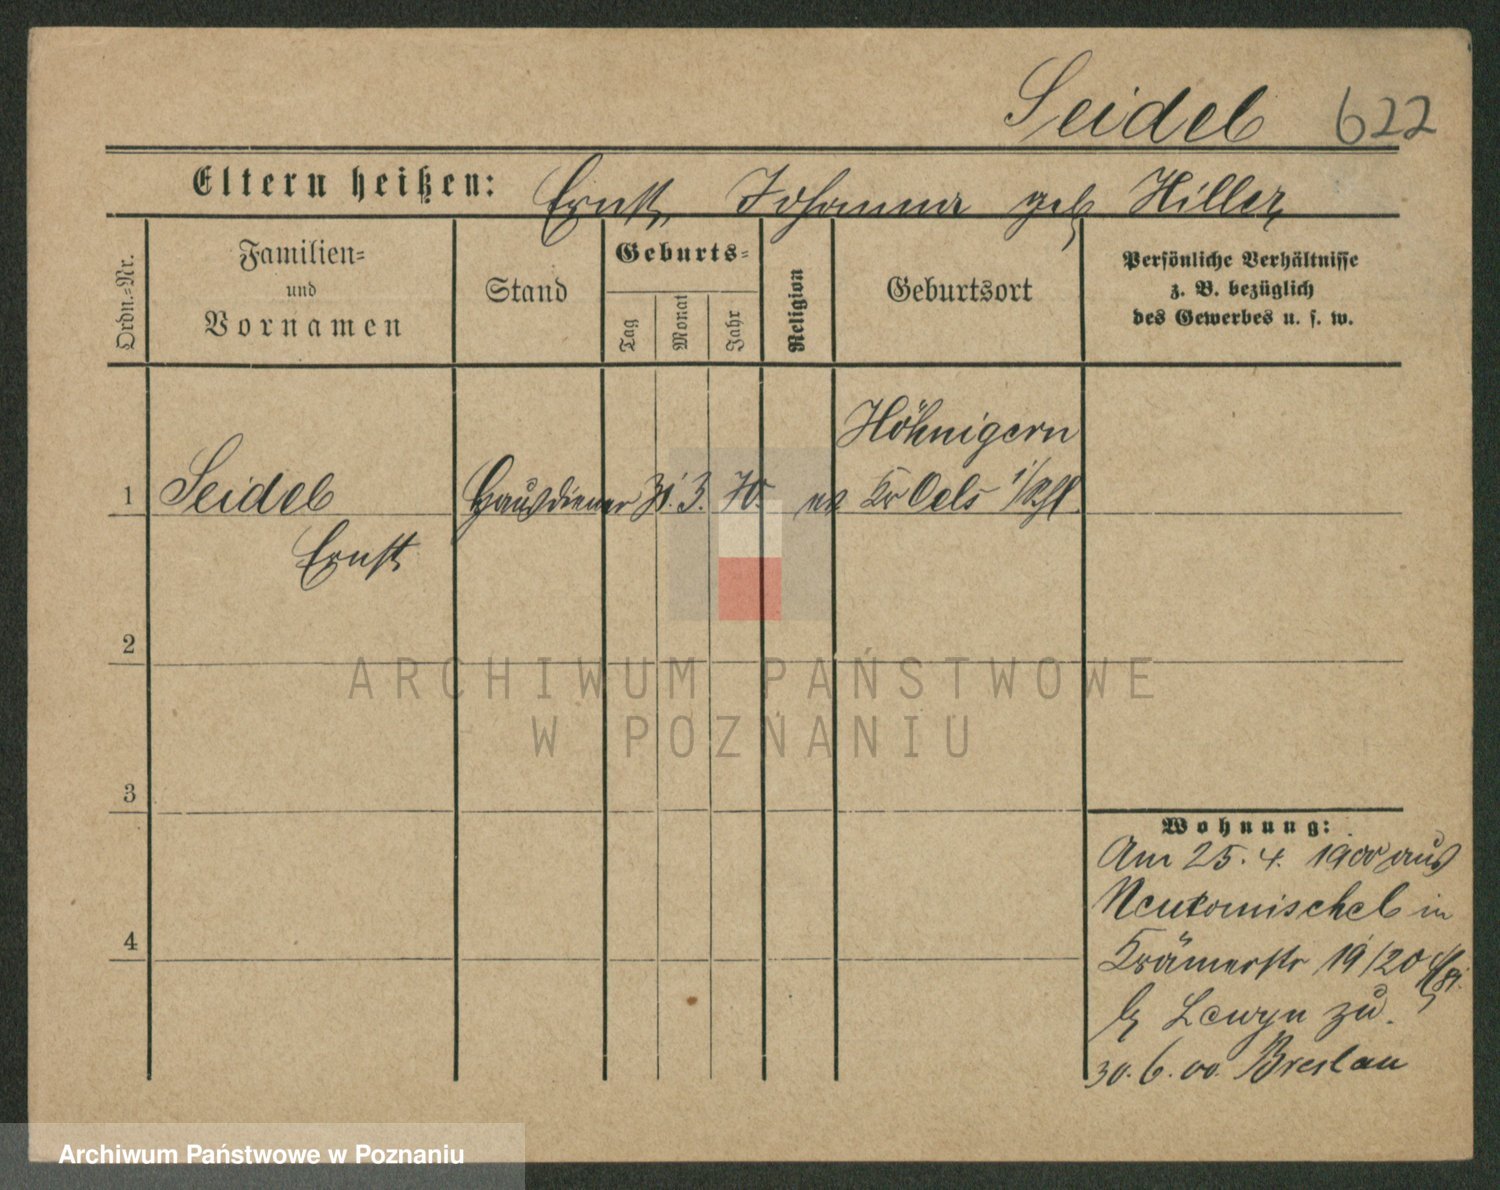 Seidel 622
Eltern heißen: Ernst, Johanna geb Hiller
Ordn.-Nr.
Familien-
und
Vornamen
Stand
Geburts-
Tag
Monat
Jahr
Religion
Geburtsort
Persönliche Verhältnisse
z. B. bezüglich
des Gewerbes u. s. w.
Höhnigern
1 Seidel Hausdiener 31. 3. 70. ev Kr Oels i/Schl.
Ernst
2
3
4
ARCHIWUM PAŃSTWOWE
W POZNANIU
Wohnung:
Am 25. 4. 1900 aus
Neutomischel in
Krämerstr 19/20
b Lewyn zu.
30. 6. 00. Breslau
Archiwum Państwowe w Poznaniu